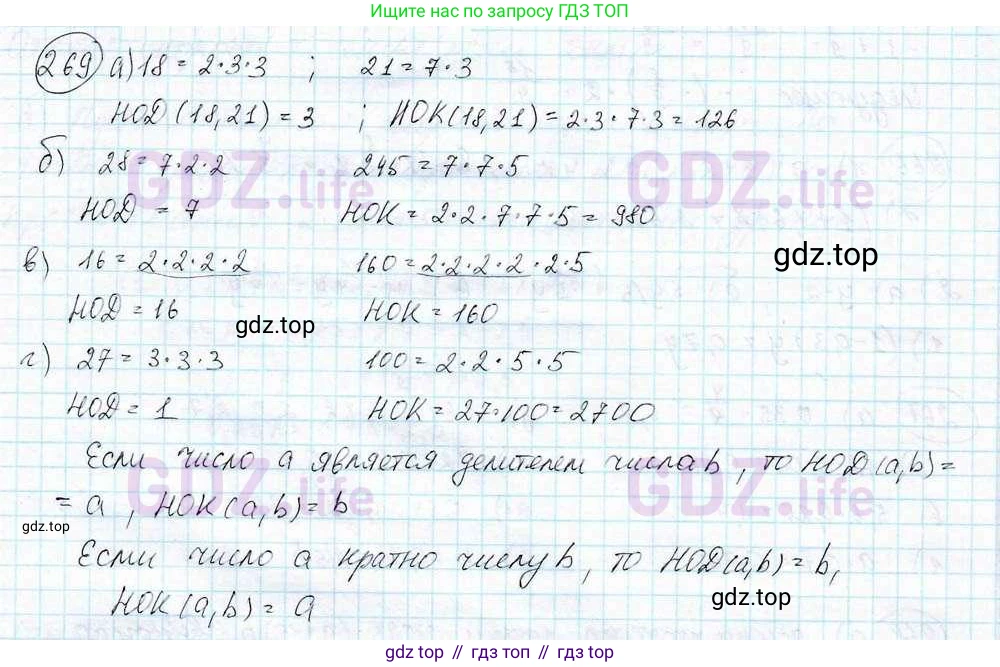 Ищите по запросу ГДЗ ТОП
269 а) 18 = 2·3·3 ; 21 = 7·3
НОД (18,21) = 3 ; НОК(18,21) = 2·3·7·3 = 126
б) 28 = 7·2·2 245 = 7·7·5
GDZ.life GDZ.life
НОД = 7 НОК = 2·2·7·7·5 = 980
в) 16 = 2·2·2·2 160 = 2·2·2·2·2·5
gdz.top
НОД = 16 НОК = 160
gdz.top
г) 27 = 3·3·3 100 = 2·2·5·5
НОД = 1 НОК = 27·100 = 2700
Если число a является делителем числа b, то НОД (a,b) =
= a, НОК (a,b) = b
GDZ.life GDZ.life
gdz.top
Если число a кратно числу b, то НОД(a,b) = b,
НОК (a,b) = a
gdz.top
gdz.top // гдз топ // gdz.top